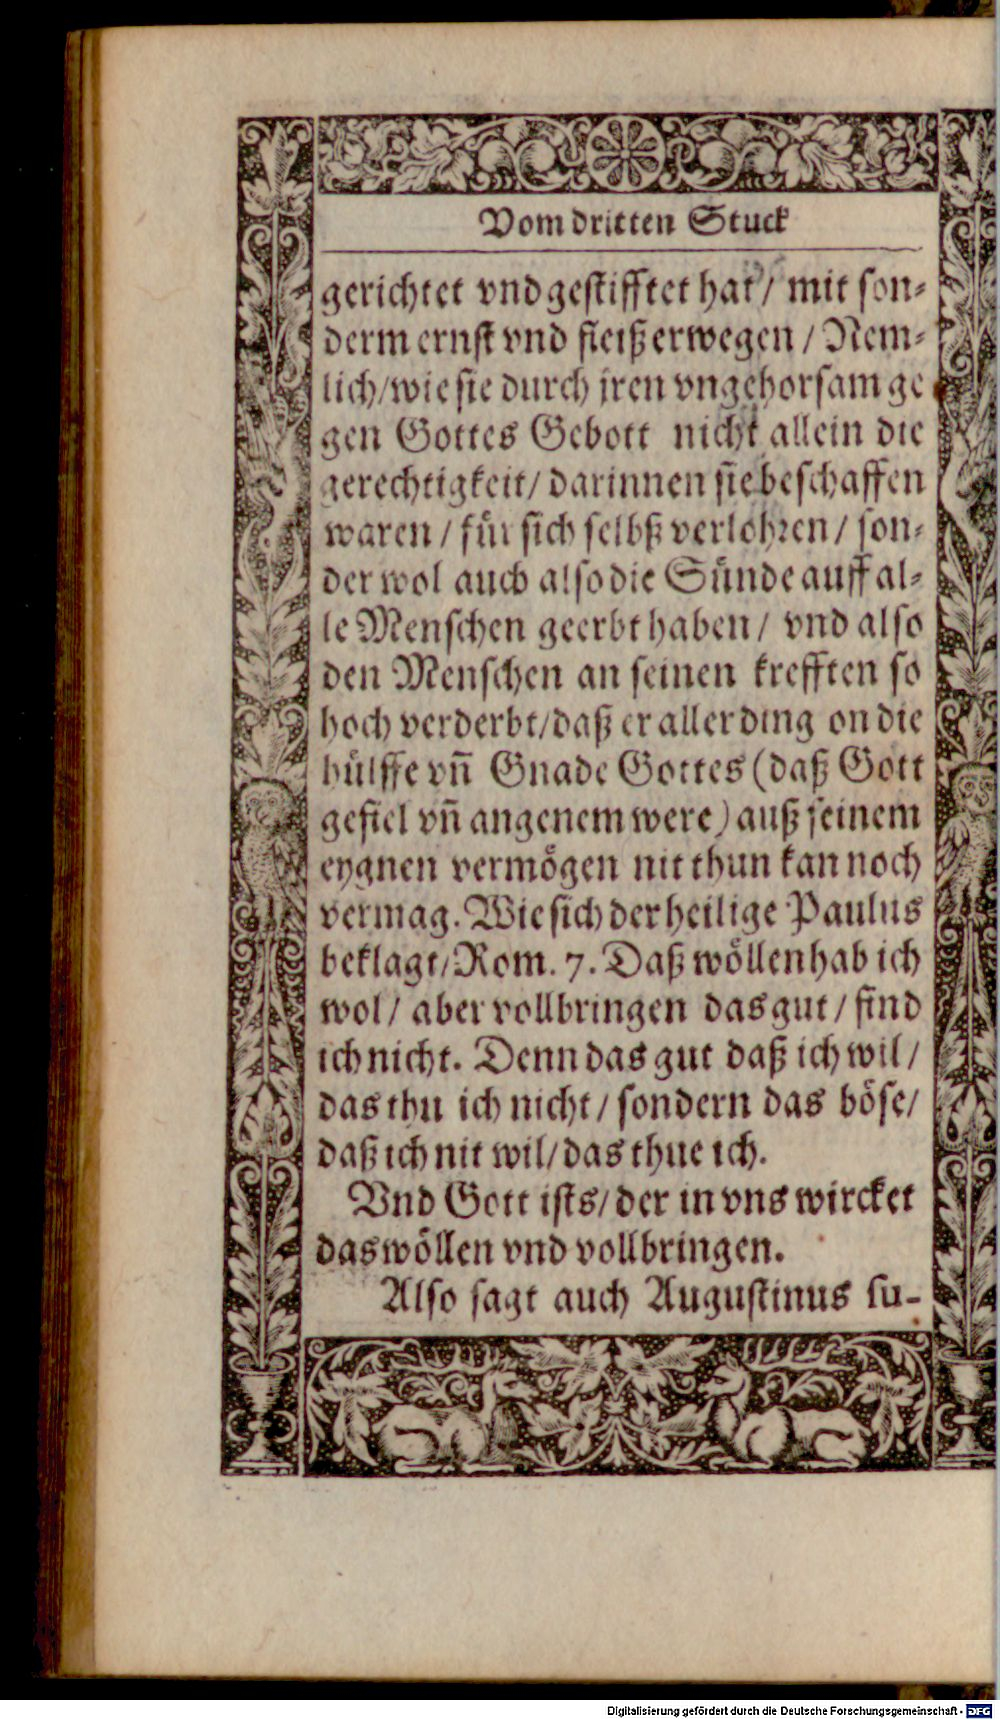 Vom dritten Stuck
gerichtet vnd gestifftet hat / mit son-
derm ernst vnd fleiß erwegen / Nem-
lich / wie sie durch jren vngehorsam ge
gen Gottes Gebott nicht allein die
gerechtigkeit / darinnen sie beschaffen
waren / für sich selbß verlohren / son-
der wol auch also die Sünde auff al-
le Menschen geerbt haben / vnd also
den Menschen an seinen krefften so
hoch verderbt / daß er aller ding on die
hülffe vñ Gnade Gottes (daß Gott
gefiel vñ angenem were) auß seinem
eygnen vermögen nit thun kan noch
vermag. Wie sich der heilige Paulus
beklagt / Rom. 7. Daß wöllen hab ich
wol / aber vollbringen das gut / find
ich nicht. Denn das gut daß ich wil /
das thu ich nicht / sondern das böse /
daß ich nit wil / das thue ich.
Vnd Gott ists / der in vns wircket
das wöllen vnd vollbringen.
Also sagt auch Augustinus su-
Digitalisierung gefördert durch die Deutsche Forschungsgemeinschaft - DFG